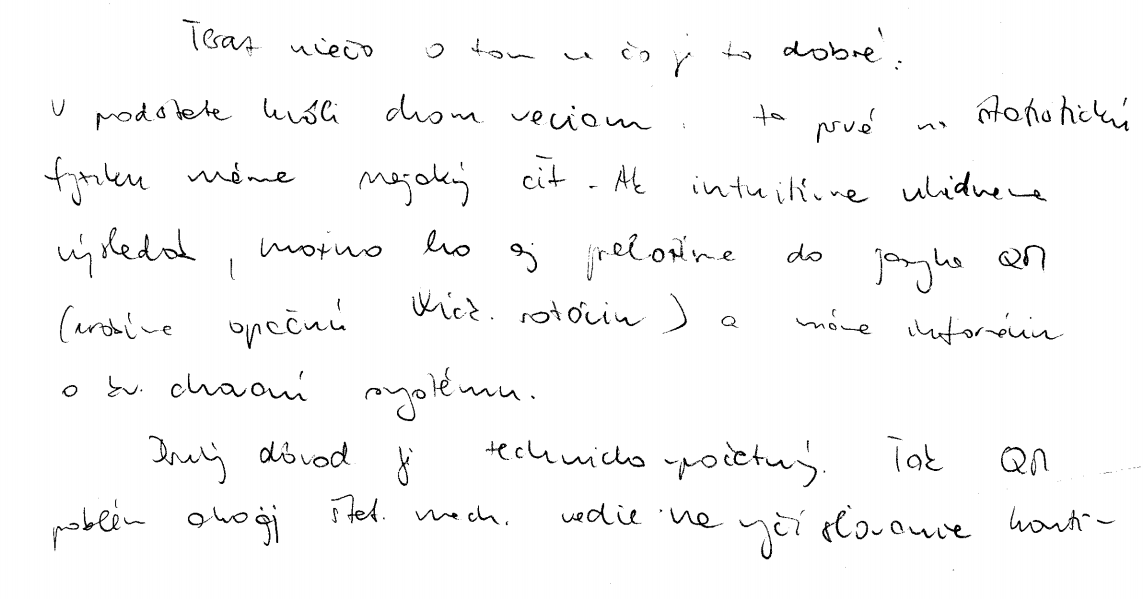 Teraz niečo o tom na čo je to dobré.
V podstate kvôli dvom veciam. to prvé na štatistickú
fyziku máme nejaký cit. Ak intuitívne uhádneme
výsledok, možno ho aj preložíme do jazyka QM
(urobíme opačnú Wick. rotáciu) a máme informáciu
o kv. chovaní systému.
Druhý dôvod je technicko-početný. Tak QM
problém ako aj štat. mech. vedie na vyčíslovanie konti-